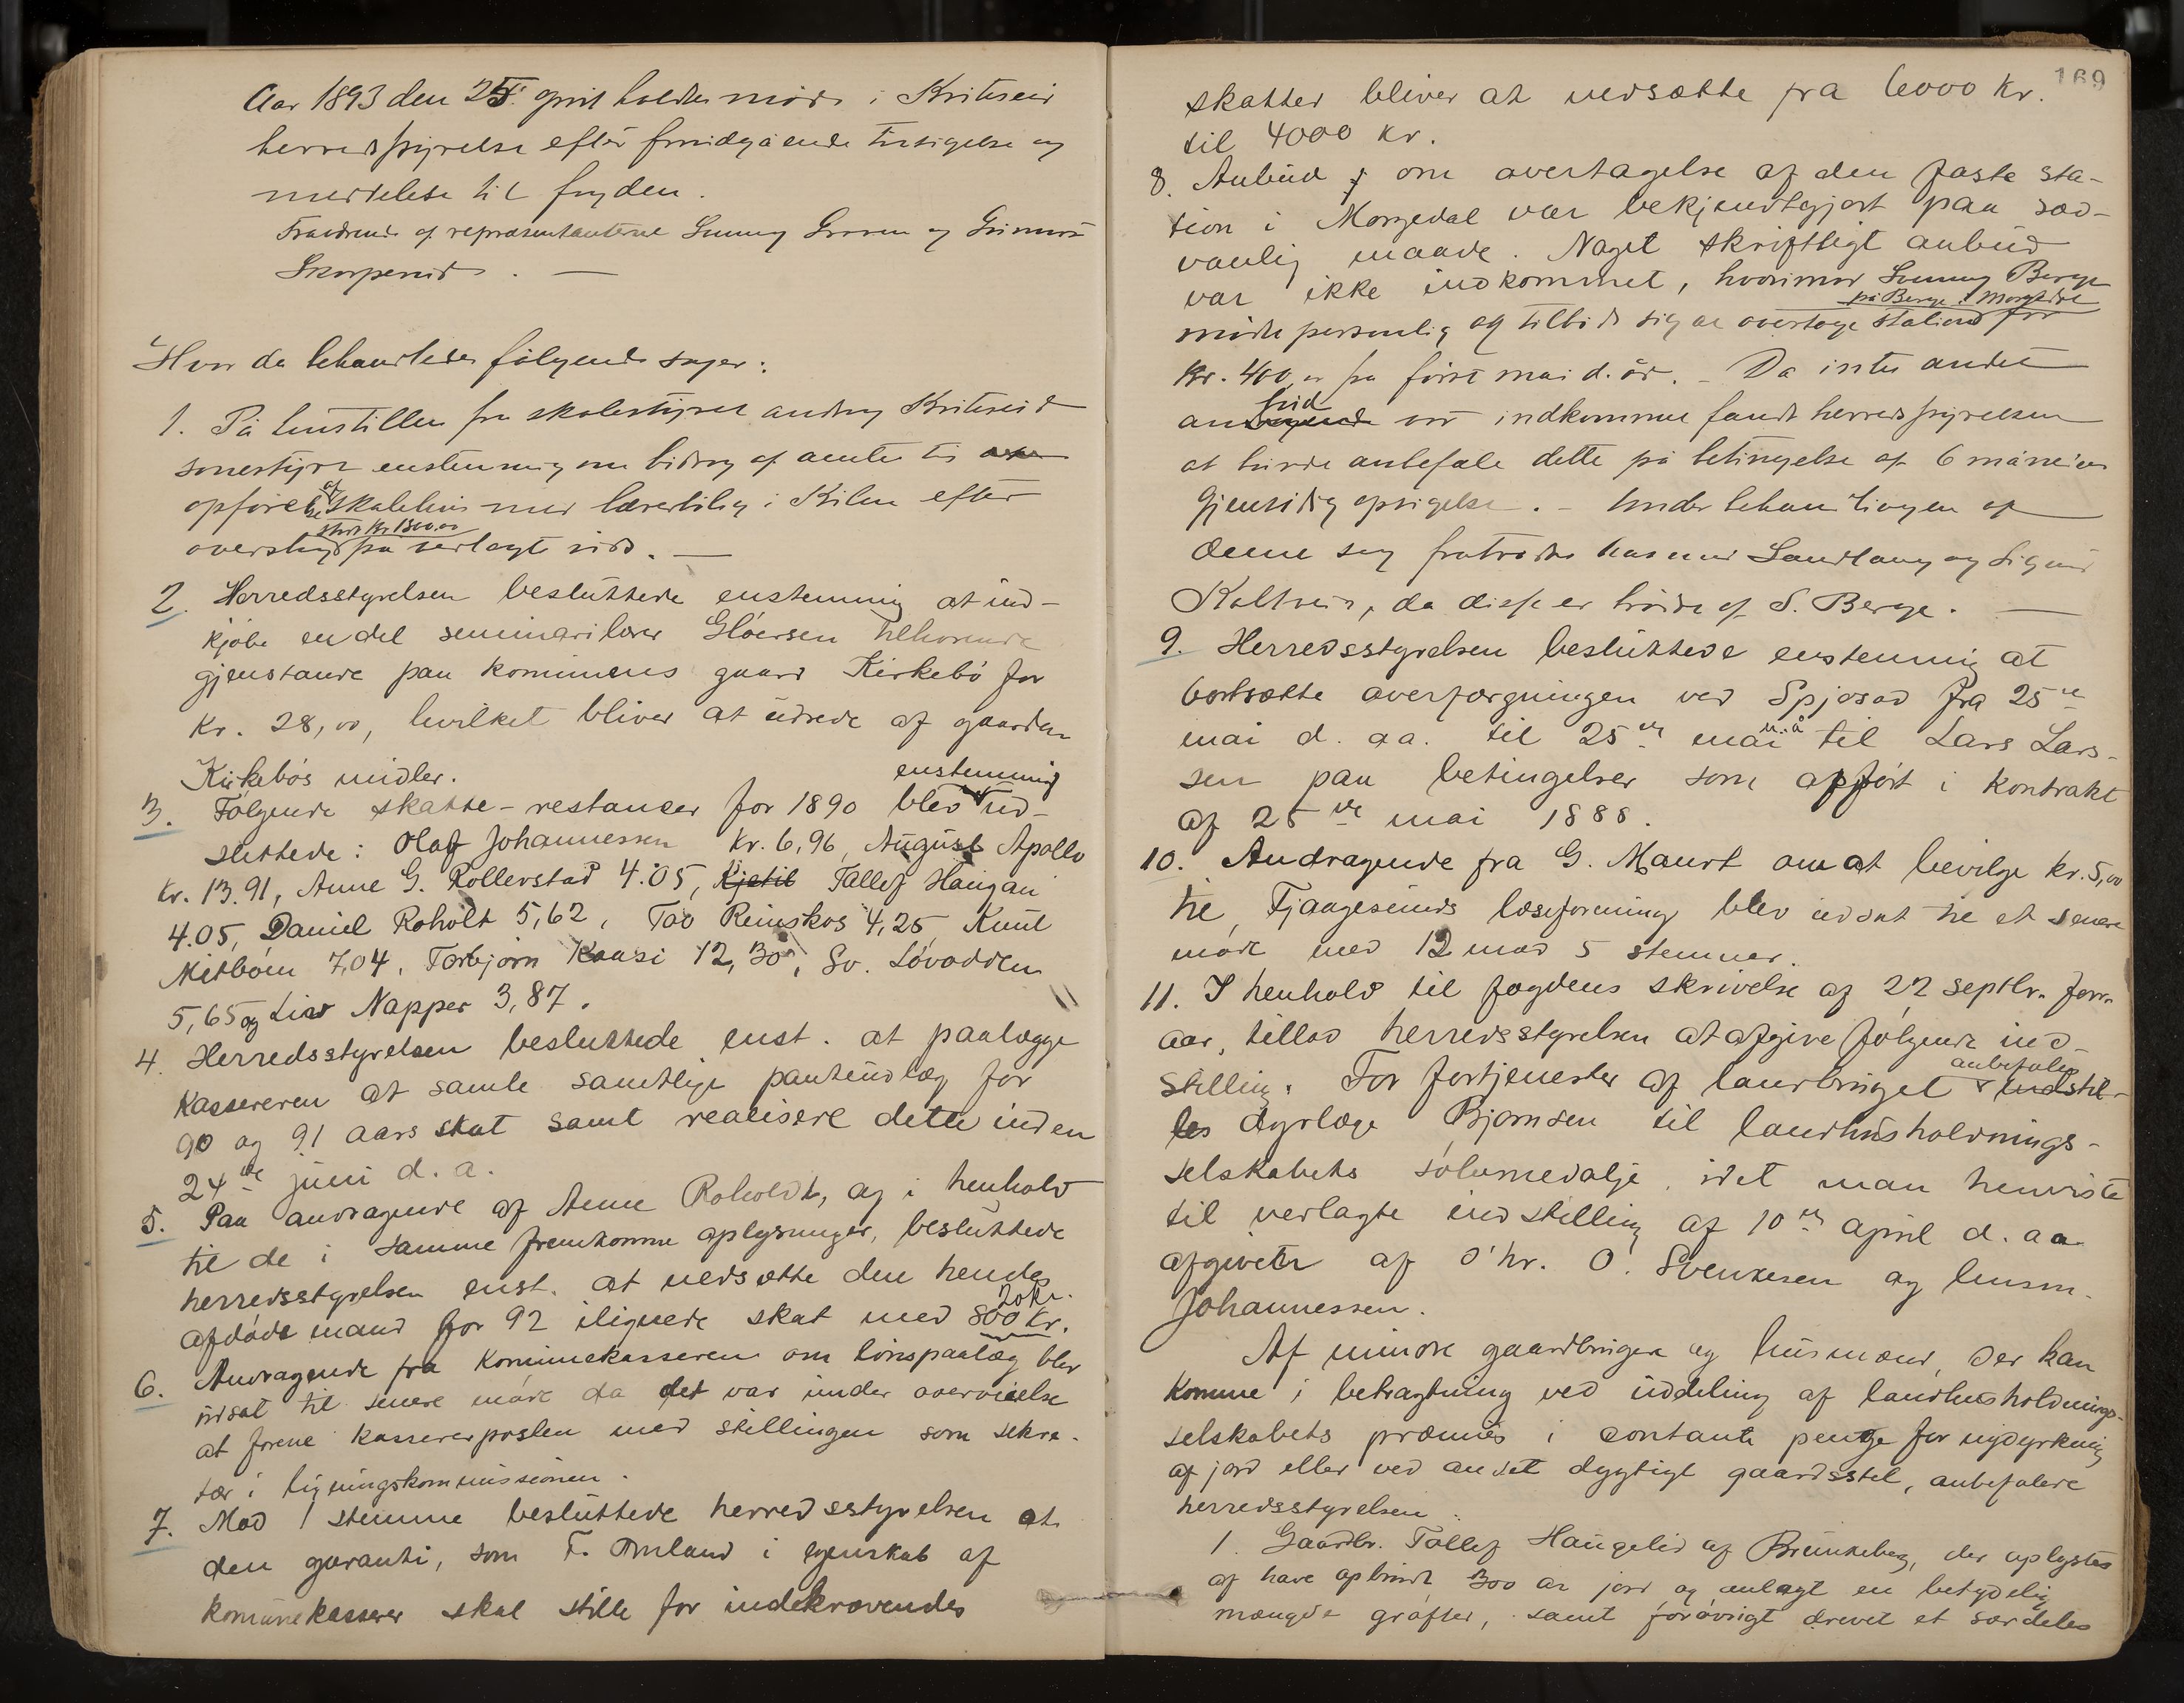 Aar 1893 den 25. april holdtes møde i Kviteseid
herredsstyrelse efter forudgående tilsigelse og
meddelelse til fogden.
Fraværende af repræsentanterne Sunnig Groven og Grimun
Skarperud. —
Hvor da behandledes følgende sager:
1. På henstillen fra skolestyret androg Kviteseid
sonestyre enstemmig om bidrag af amtet til
opførelse af skolehus med lærerbolig i Kilen efter
overslag stort kr 1800.00 på vedlagte vids. —
2. Herredsstyrelsen besluttede enstemmig at ind-
kjøbe en del seminarilærer Gløersen tilhørende
gjenstande paa kommunens gaard Kirkebø for
kr. 28,00, hvilket bliver at udrede af gaarden
Kirkebøs midler.
3. Følgende skatte-restancer for 1890 blev enstemmig ud-
slettede: Olaf Johannessen kr. 6,96, August Apollo
kr. 13.91, Anne G. Rollerstad 4.05, Kjetil Tallef Haugan
4.05, Daniel Roholt 5,62, Tao Reinskos 4,25 Knut
Mitbøen 7,04, Torbjørn Kaasi 12,30, Sv. Løvodden
5,65 og Liv Napper 3,87.
4. Herredsstyrelsen besluttede enst. at paalægge
kassereren at samle samtlige panteudlæg for
90 og 91 aars skat samt realisere dette inden
24de juni d. a.
5. Paa andragende af Anne Roholdt, og i henhold
til de i samme fremkomne oplysninger, besluttede
herredsstyrelsen enst. at nedsætte den hendes
afdøde mand for 92 ilignede skat med 800 kr. 20 kr.
6. Andragende fra kommunekassereren om lønspaalæg blev
udsat til senere møde da det var under overveielse
at forene kassererposten med stillingen som sekre-
tær i ligningskommissionen.
7. Mod 1 stemme besluttede herredsstyrelsen at
den garanti, som T. Omland i egenskab af
kommunekasserer skal stille for indekrævendes
169
skatter bliver at nedsætte fra 6000 kr.
til 4000 kr.
8. Anbud om overtagelse af den faste sta-
tion i Morgedal var bekjendtgjort paa sæd-
vanlig maade. Noget skriftligt anbud
var ikke indkommet, hvorimod Sunnig Berge
på Berge i Morgedal
mødte personlig og tilbød sig at overtage station for
kr. 400,00 fra først mai d. år. — Da intet andet
anbud var indkommet fandt herredsstyrelsen
at burde anbefale dette på betingelse af 6 måneders
gjensidig opsigelse. — Under behandlingen af
denne sag fratrådte Rasmus Landtang og Sigurd
Kaltvein, da disse er brødre af S. Berge. —
9. Herredsstyrelsen besluttede enstemmig at
bortsætte overfærgningen ved Spjosod fra 25de
mai d. aa. til 25de mai n. å til Lars Lars-
sen paa betingelser som opført i kontrakt
af 25de mai 1888.
10. Andragende fra G. Maurt om at bevilge kr. 5,00
til Fjaagesunds læseforening blev udsat til et senere
møde med 12 mod 5 stemmer.
11. I henhold til fogdens skrivelse af 22 septbr. forr.
aar, tillod herredsstyrelsen at afgive følgende ind-
stilling. For fortjenester af landbruget anbefales indstil-
les dyrlæge Bjornsen til landhusholdnings-
selskabets sølvmedalje, idet man henviste
til vedlagte indstilling af 10de april d. aa
afgivet af d'hr. O. Svenkesen og husm.
Johannessen.
Af mindre gaardbrugere og husmænd, der kan
komme i betragtning ved uddeling af landhusholdnings-
selskabets præmies i contante penge for nydyrkning
af jord eller ved andet dygtigt gaardsstel, anbefalede
herredsstyrelsen:
1. Gaardbr. Tallef Haugelid af Brunkeberg, der oplystes
af have opbrudt 300 ar jord og anlagt en betydelig
mængde grøfter, samt forøvrigt drevet et særdeles